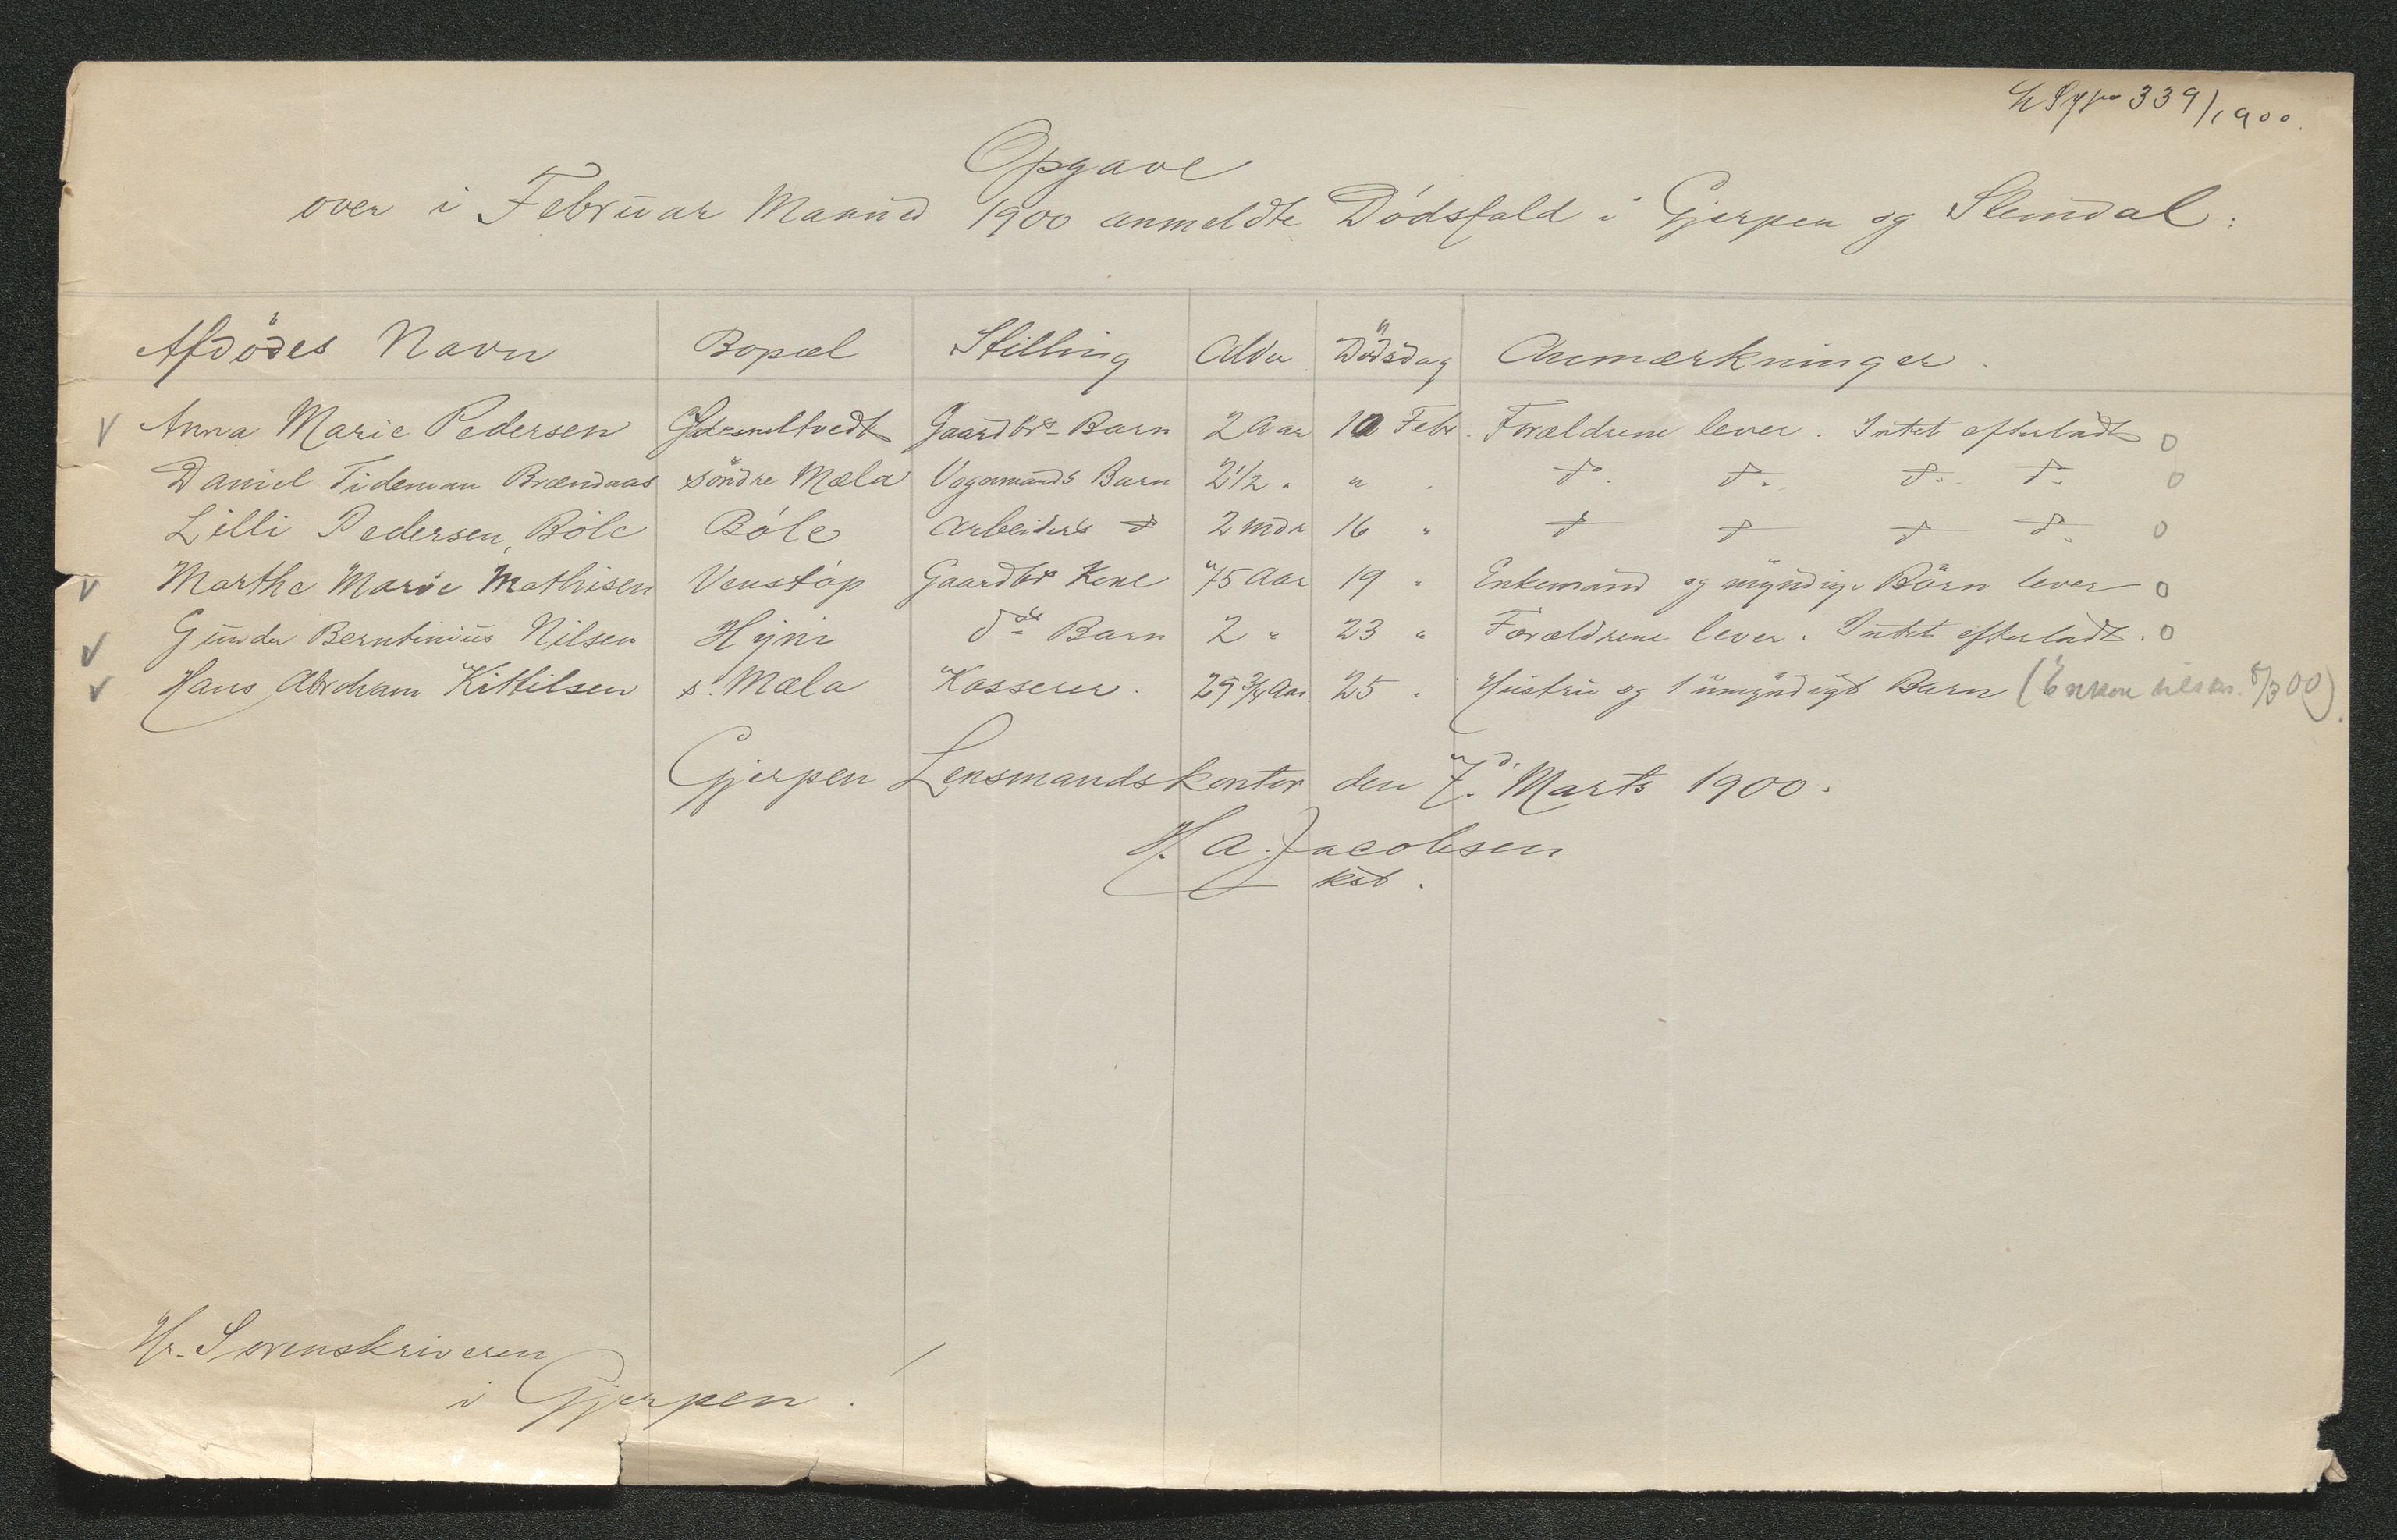 339/1900.
Opgave
over i Februar Maaned 1900 anmeldte Dödsfald i Gjerpen og Slemdal:
Afdödes Navn Bopæl Stilling Alder Dödsdag Anmærkninger.
Anna Marie Pedersen Gaardbrs Barn 2 Aar 10 Febr. Forældrene lever. Intet efterladt 0
Daniel Tideman Brændaas söndre Mæla Vognmands Barn 2 1/2 " " " do. do. do. do. 0
Lilli Pedersen, Böle Böle Arbeiders do 2 mdr 16 " do do do do. 0
Marthe Marie Mathisen Venstöp Gaardbrs Kone 75 Aar 19 " Enkemand og myndige Börn lever 0
Gunder Berntinius Nilsen Hyni do Barn 2 " 23 " Forældrene lever. Intet efterladt. 0
Hans Abraham Kittilsen s. Mæla Kasserer. 29 3/4 Aar. 25 " Hustru og 1 umyndigt Barn (Enken tilskr. 8/3 00).
Gjerpen Lensmandskontor den 7. Marts 1900.
H. A. Jacobsen
kst.
Hr. Sorenskriveren
i Gjerpen.